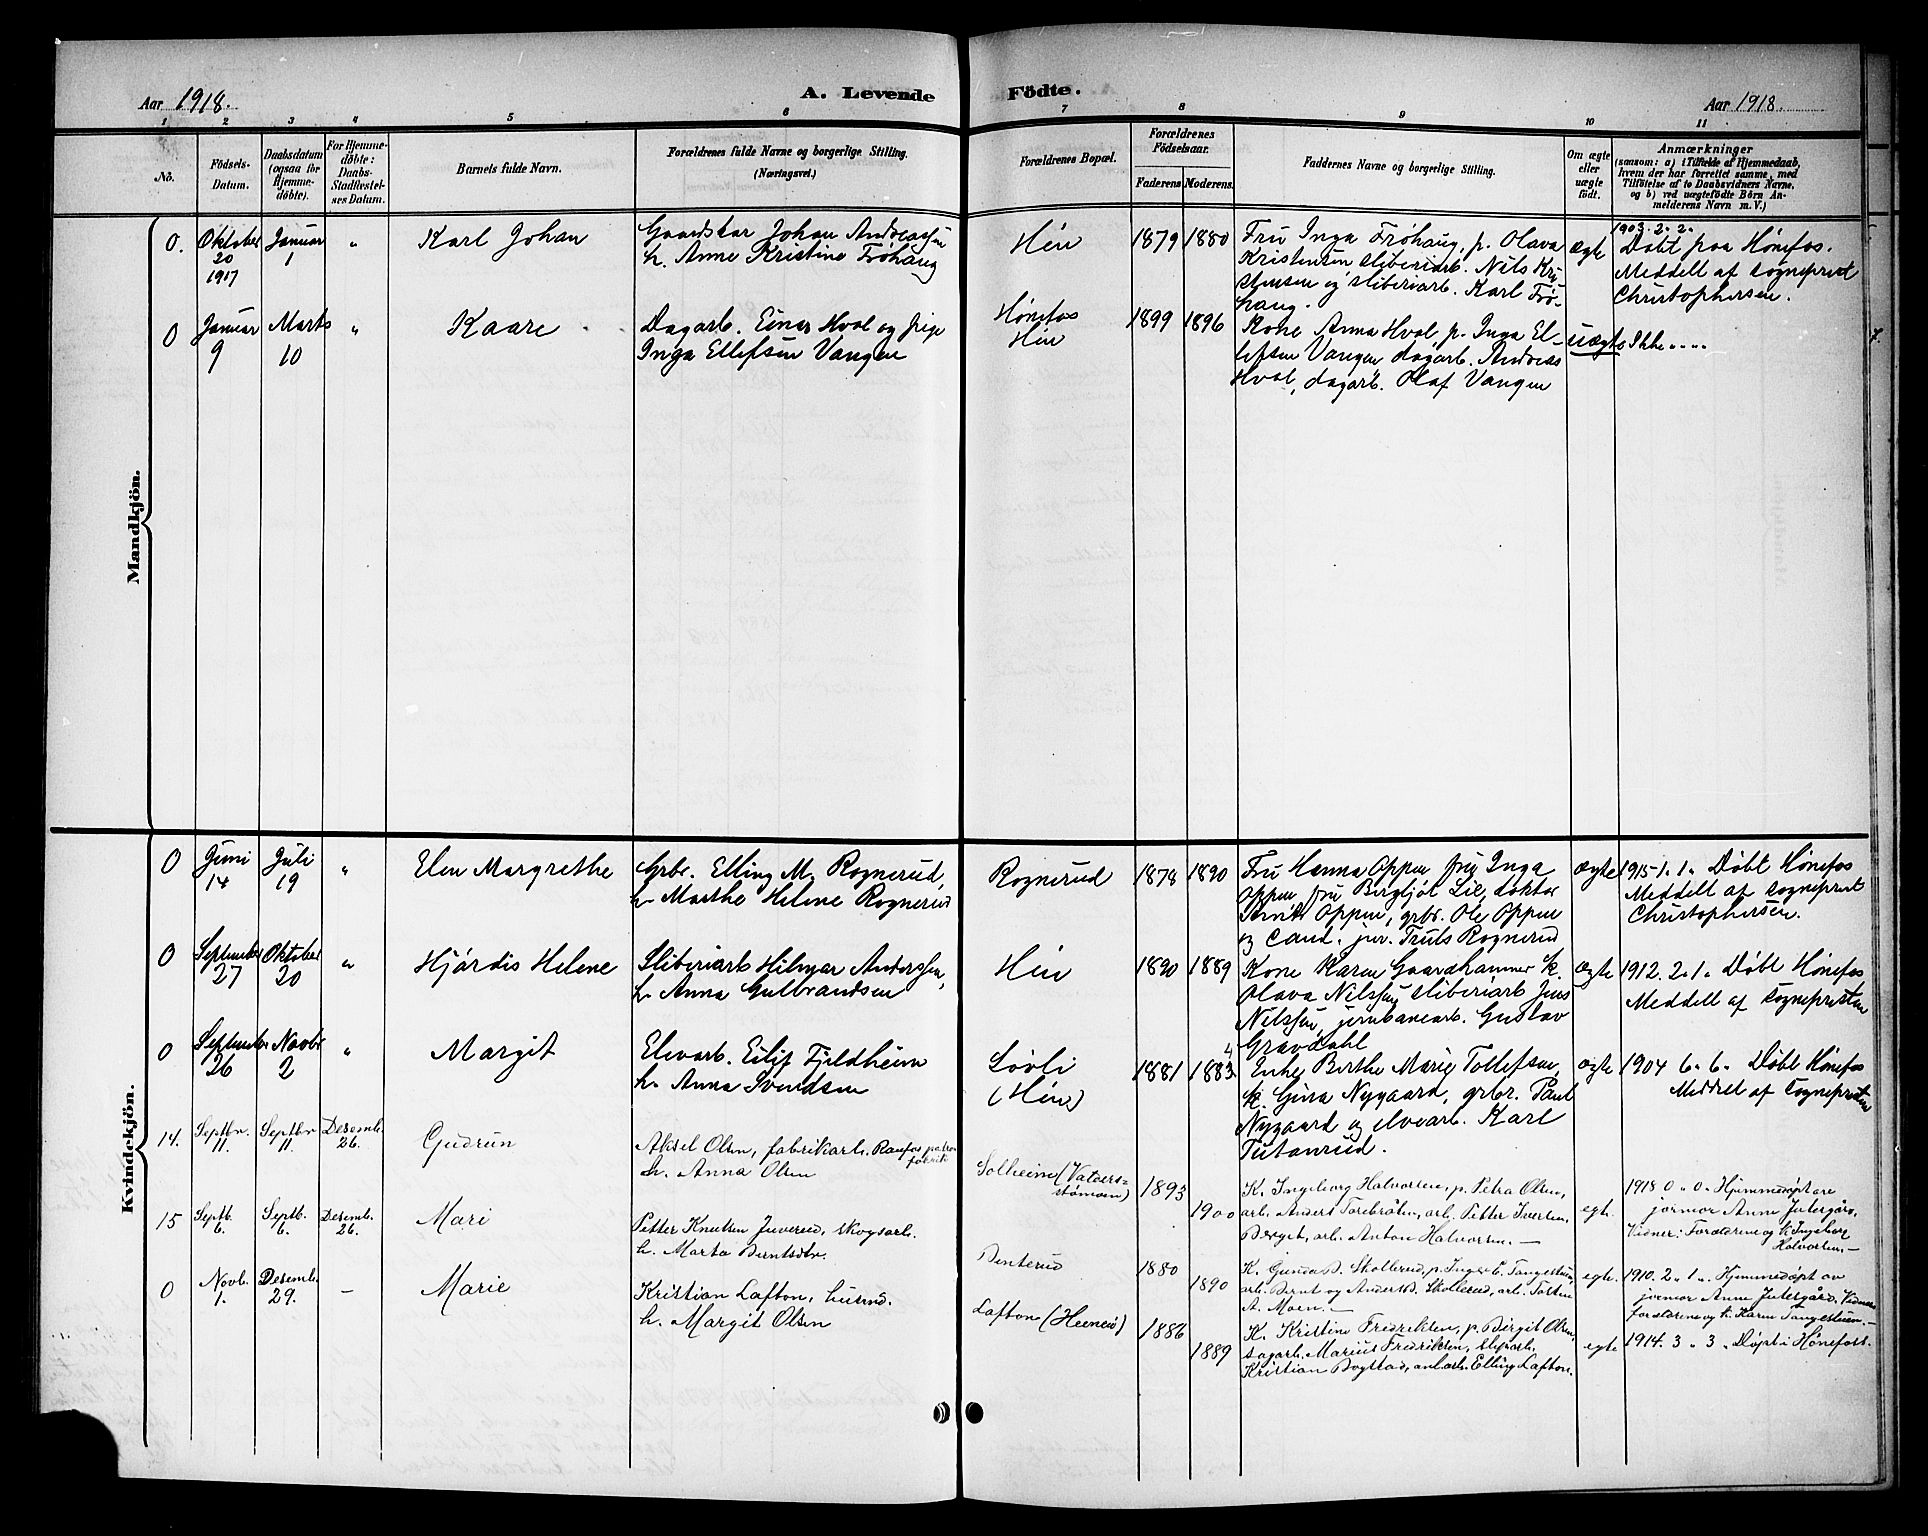 Aar 1918.
A. Levende Födte.
Aar 1918.
1 2 3 4 5 6 7 8 9 10 11
No.
Födsels-Datum.
Daabsdatum (ogsaa for Hjemme-döbte).
For Hjemme-döbte: Daabs-Stadfæstel-ses Datum.
Barnets fulde Navn.
Forældrenes fulde Navne og borgerlige Stilling.
(Næringsvei.)
Forældrenes Bopæl.
Forældrenes Födselsaar.
Faderens Moderens.
Faddernes Navne og borgerlige Stilling.
Om ægte eller uægte födt.
Anmærkninger
(saasom: a) i Tilfælde af Hjemmedaab,
hvem der har forrettet samme, med
Tilföielse af to Daabsvidners Navne,
og b) ved uægtefödte Börn An-
melderens Navn m. V.)
Mandkjön.
0. Oktober 20 1917
Januar 1
"
Karl Johan
Gaardskar Johan Andreassen
h. Anne Kristine Frøhaug
Hén
1879 1880
Fru Inga Frøhaug, p. Olava
Kristensen sliberiarb. Nils Kri-
stensen og sliberiarb. Karl Frø-
haug.
ægte
1903. 2. 2.
Døbt paa Hønefos.
Meddelt af sogneprest
Christophersen.
0 Januar 9
Marts 10
"
Kaare
Dagarb. Einar Hval og pige
Inga Ellefsen Vangen
Hønefos
Hén
1899 1896
Kone Anna Hval, p. Inga El-
lefsen Vangen dagarb. Andreas
Hval, dagarb. Olaf Vangen
uægte
Ikke "..."
Kvindekjön.
0 Juni 14
Juli 19
"
Elen Margrethe
Grbr. Elling M. Rognerud,
h. Marthe Helene Rognerud
Rognerud
1878 1890
Fru Hanna Oppen frk Inga
Oppen, fru Bergljót Lie, doktor
Oppen, grbr. Ole Oppen
og Cand. jur. Truls Rognerud
ægte
1915. 1. 1. Døbt Hønefos
Meddelt af sogneprest
Christophersen.
0 September 27
Oktober 20
"
Hjördis Helene
Sliberiarb Hilmar Anderssen,
h. Anna Gulbrandsen
Hén
1890 1889
Kone Karen Gaardhammer k.
Olava Nilssen, sliberiarb Jens
Nilssen, jernbanearb. Gustav
Gravdahl
ægte
1912. 2. 1. Døbt Hønefos
Meddelt af sognepresten
0 September 26
Novbr 2
"
Margit
Elvearb. Eilif Fjeldheim
h. Anna Svendsen
Løvli
(Hén)
1881 1883
Enke Berthe Marie Tollefsen,
k. Gina Nygaard, grbr. Paul
Nygaard og elvearb. Karl
Tutanrud.
ægte
1904 6. 6. Døbt Hønefos
Meddelt af Sognepresten
14. Septbr. 11.
Septbr 11.
Desemb. 26.
Gudrun
Aksel Olsen, fabrikarb. Raufos patron
fabrik
h. Anna Olsen
Solheim (Valders-
stømoen)
1893
1900
K. Ingeborg Halvorsen, p. Petra Olsen,
arb. Anders Torebråten, arb. Petter Iversen,
Berget, arb. Anton Halvorsen. —
egte.
1918 0 " 0. Hjemmedöpt av
jormor Anne Jutergård,
Vidner: Foraldrene og k. Ingeborg
Halvorsen. —
15 Septb. 6.
Septb. 6.
Desemb. 26.
Mari
Petter Knutsen Juverud, skogsarb.
h. Marta Berntsdtr.
Benterud
1880
1890
K. Gunda B. Skollerud, p. Inger E. Tangestuen,
arb. Bernt og Anders B. Skollerud, arb. Tosten
A. Moen. —
egte.
1910. 2 " 1 ". Hjemmedöpt av
jormor Anne Jutergård. Vidner
foraldrene og k. Karen Tangestuen. —
0 Novb. 1.
Desemb. 29.
—
Marie
Kristian Lafton, husmd.
h. Margit Olsen
Lafton (Heenes)
1886
1889
K. Kristine Fredriksen, p. Birgit Olsen,
sagarb. Marius Fredriksen, sliparb.
Kristian Bogstad, anl.arb. Elling Lafton.
egte
1914. 3 " 3 " Döpt i Hönefoss.